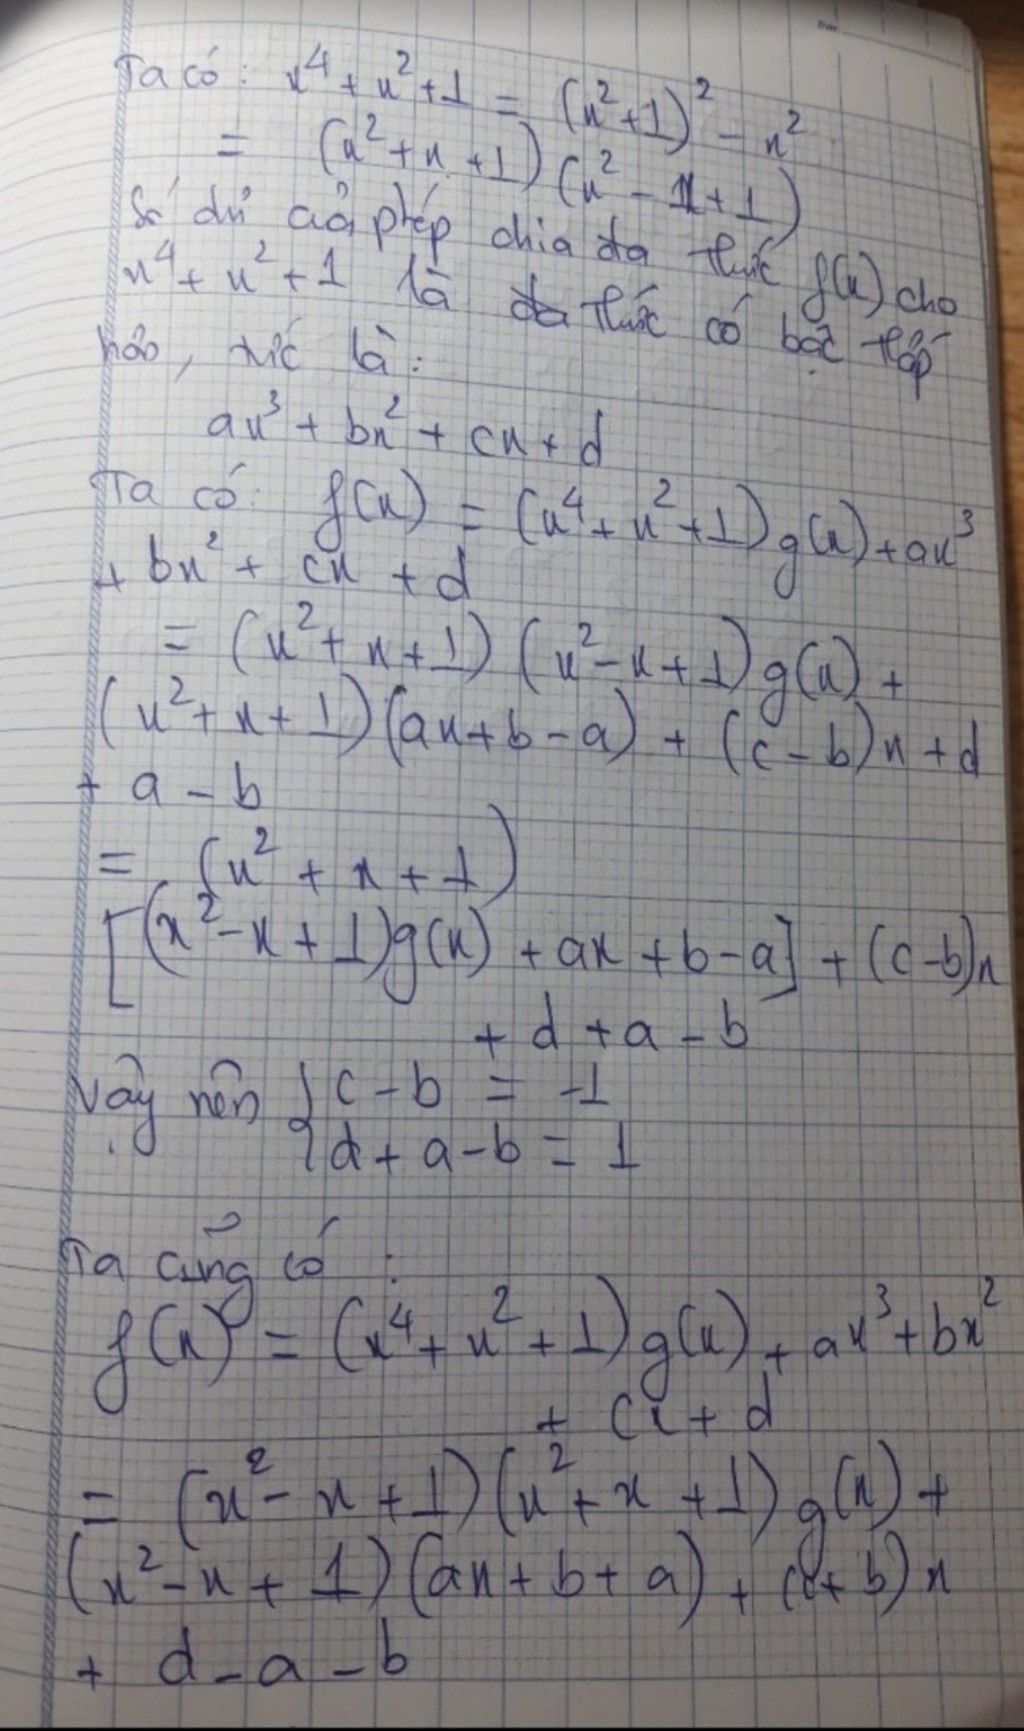 Ta có: x⁴ + x² + 1 = (x² + 1)² - x²
= (x² + x + 1) (x² - x + 1)
Số dư của phép chia đa thức f(x) cho
x⁴ + x² + 1 là đa thức có bậc thấp
hơn, tức là:
ax³ + bx² + cx + d
Ta có: f(x) = (x⁴ + x² + 1) g(x) + ax³
+ bx² + cx + d
= (x² + x + 1) (x² - x + 1) g(x) +
(x² + x + 1) (ax + b - a) + (c - b)x + d
+ a - b
= (x² + x + 1)
[(x² - x + 1)g(x) + ax + b - a] + (c - b)x
+ d + a - b
Vậy nên { c - b = -1
{ d + a - b = 1
Ta cũng có :
f(x) = (x⁴ + x² + 1) g(x) + ax³ + bx²
+ cx + d
= (x² - x + 1) (x² + x + 1) g(x) +
(x² - x + 1) (ax + b + a) + (c + b) x
+ d - a - b